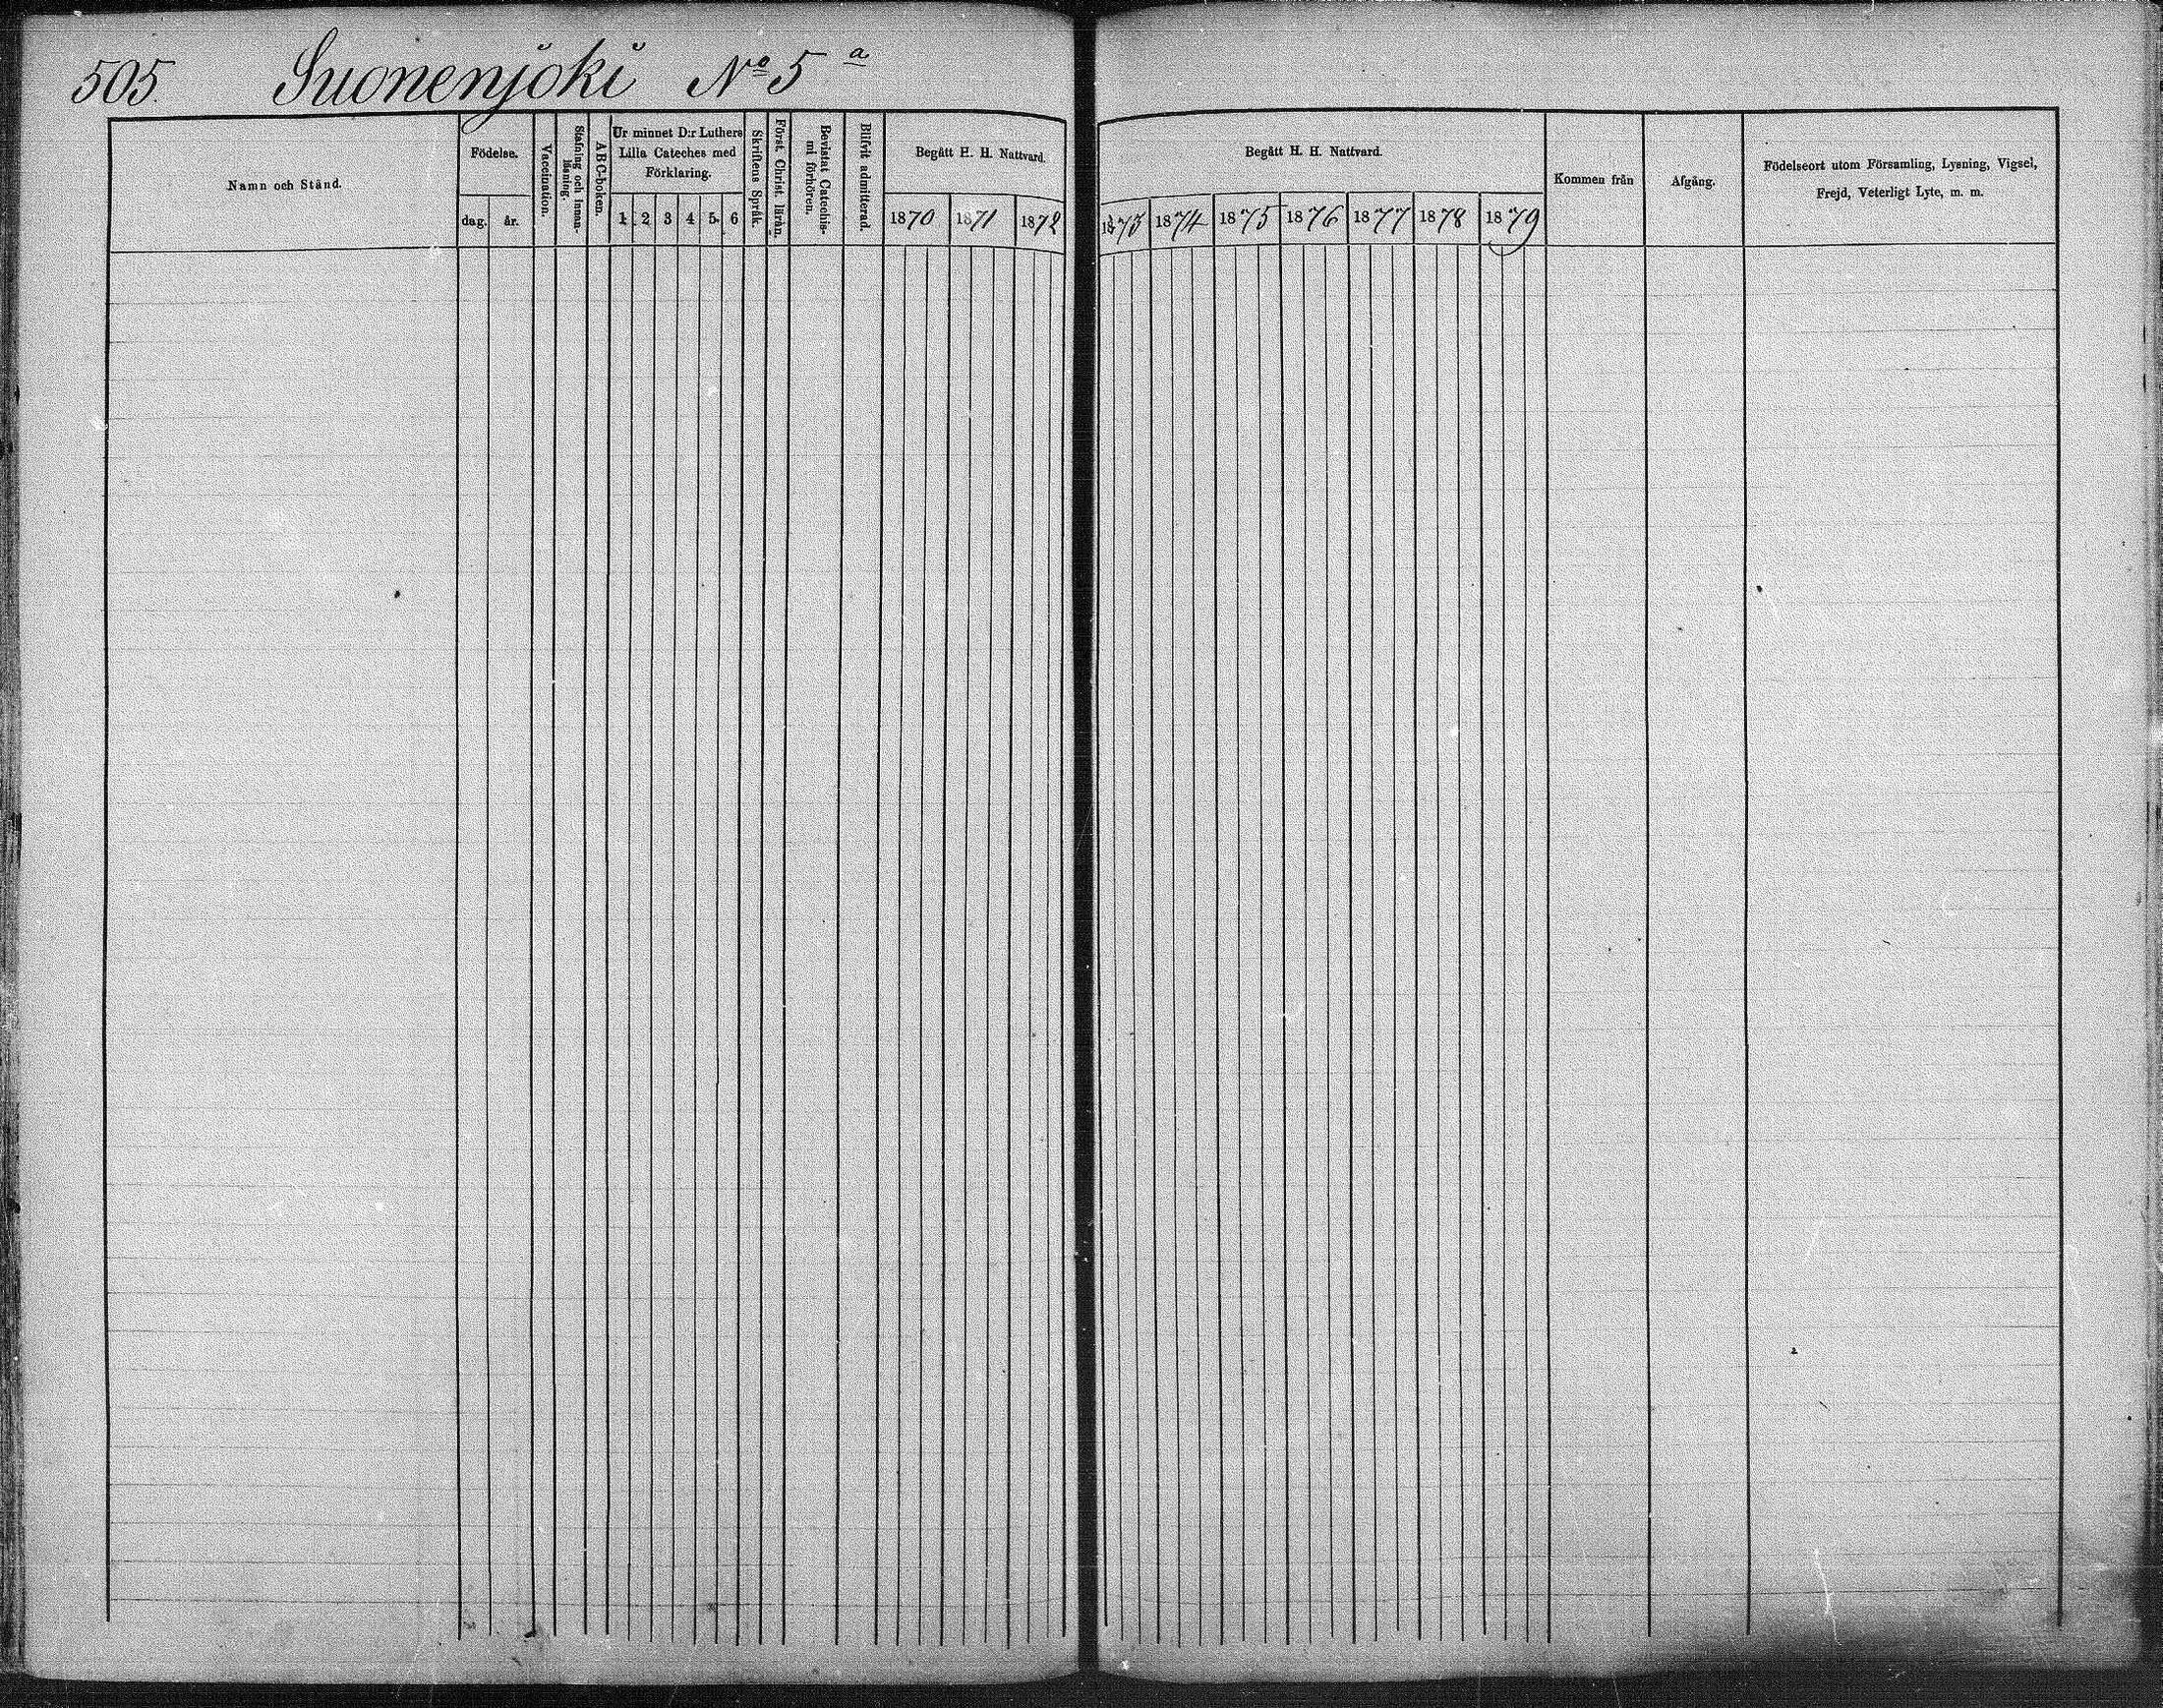 505. Suonenjoki No 5 a
Namn och Stånd.
Födelse.
dag.
år.
Vaccination.
Stafning och Innan-
läsning.
ABC-boken.
Ur minnet D:r Luthers
Lilla Cateches med
Förklaring.
1 2 3 4 5 6
Skriftens Språk.
Först. Christ. lärän.
Bevistat Catechis-
mi förhören.
Blifvit admitterad.
Begått H. H. Nattvard.
1870 1871 1872
Begått H. H. Nattvard.
1873 1874 1875 1876 1877 1878 1879
Kommen från
Afgång.
Födelseort utom Församling, Lysning, Vigsel,
Frejd, Veterligt Lyte, m. m.